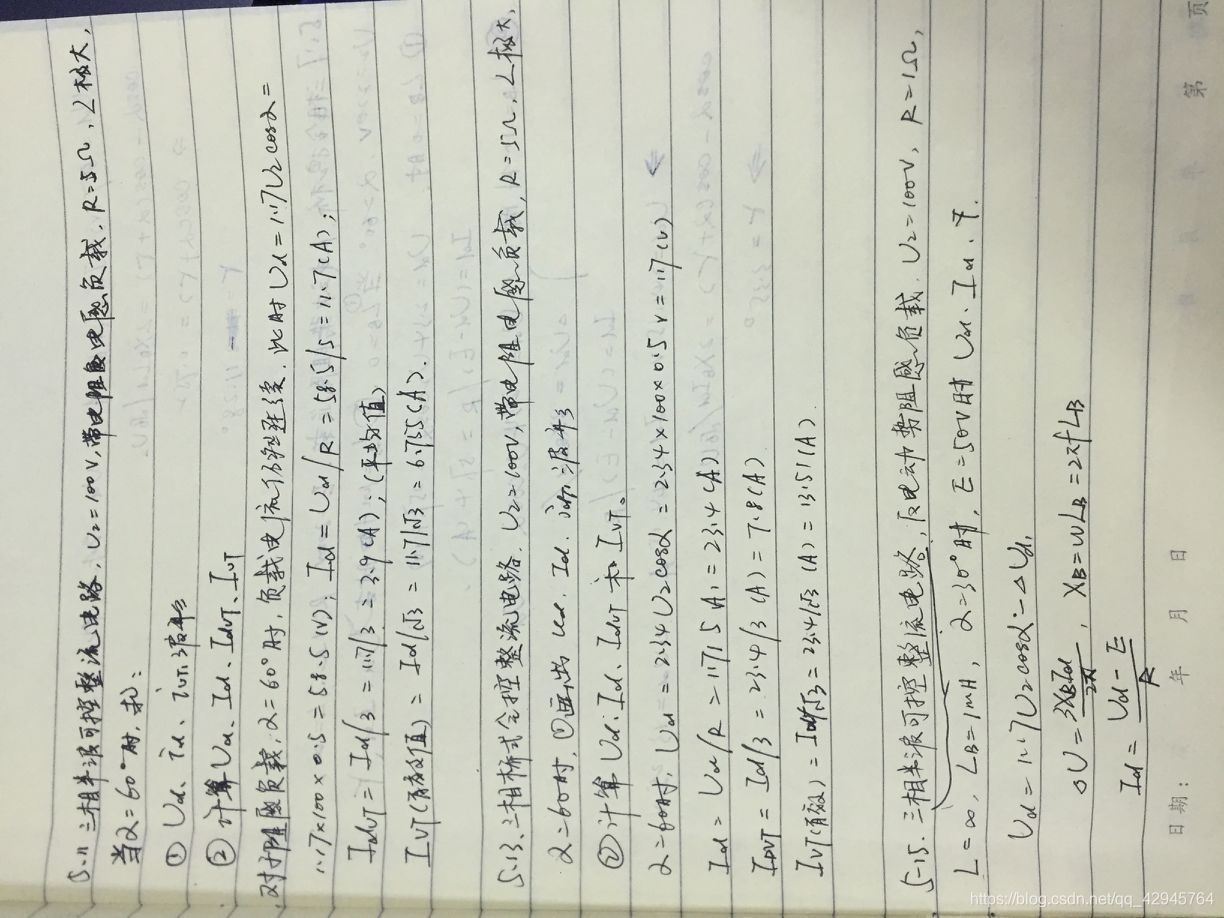 5-11 三相半波可控整流电路, U2=100V, 带电阻电感负载, R=5Ω, L极大,
当α=60°时, 求:
① Ud、id、iVT1波形
② 计算Ud、Id、IdVT、IVT
对于阻感负载, α=60°时, 负载电流仍然连续, 此时Ud=1.17U2cosα=
1.17×100×0.5=58.5(V); Id=Ud/R=58.5/5=11.7(A);
IdVT=Id/3=11.7/3=3.9(A); (平均值)
IVT(有效值)=Id/√3=11.7/√3=6.755(A).
5-13. 三相桥式全控整流电路. U2=100V, 带电阻电感负载, R=5Ω, L极大,
α=60时, ①画出ud、Id、iVT1波形
②计算Ud、Id、IdVT和IVT。
α=60时, Ud=2.34U2cosα=2.34×100×0.5V=117(V)
Id=Ud/R=117/5(A)=23.4(A)
IDVT=Id/3=23.4/3(A)=7.8(A)
IVT(有效)=Id/√3=23.4/√3(A)=13.51(A)
5-15. 三相半波可控整流电路, 反电动势阻感负载. U2=100V, R=1Ω,
L=∞, LB=1mH, α=30°时, E=50V时 Ud、Id、γ.
Ud=1.17U2cosα-△Ud,
△U=3XBId/2π, XB=WLB=2πfLB
Id=Ud-E/R
日期: 年 月 日 第 页
https://blog.csdn.net/qq_42945764